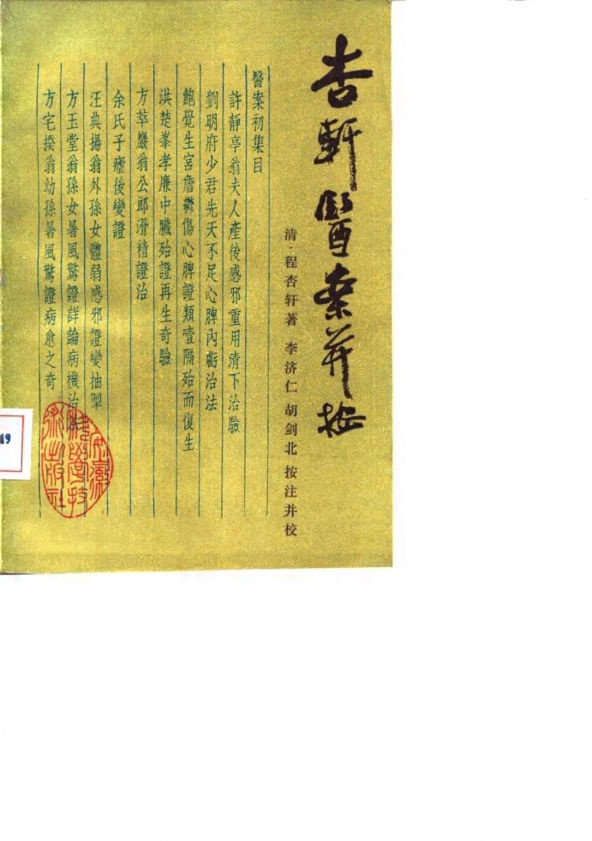 杏軒醫案并按
清·程杏轩著 李济仁 胡剑北 按注并校
醫案初集目
許靜亭翁夫人產後感邪重用清下治驗
劉明府少君先天不足心脾內虧治法
鮑覺生宮詹鬱傷心脾證類噎隔殆而復生
洪楚峯孝廉中臟殆證再生奇驗
方萃巖翁公郎滑精證治
余氏子瘧後變證
汪典揚翁外孫女體弱感邪證變抽掣
方玉堂翁孫女暑風驚證詳論病機治
方宅揆翁幼孫暑風驚證病愈之奇
安徽科學技術出版社
19